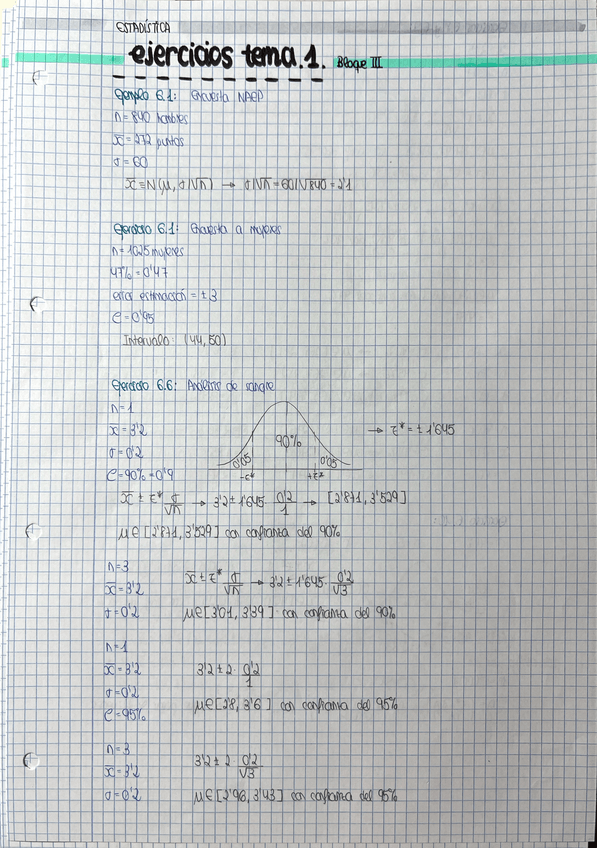 ESTADÍSTICA
ejercicios tema.1. Bloque III
Ejemplo 6.1: Encuesta NAEP
n = 840 hombres
x̄ = 272 puntos
σ = 60
x̄ ≡ N(μ, σ/√n) → σ/√n = 60/√840 = 2'1
Ejercicio 6.1: Encuesta a mujeres
n = 1025 mujeres
47% = 0'47
error estimación = ±3
C = 0'95
Intervalo: (44, 50)
Ejercicio 6.6: Análisis de sangre
n = 1
x̄ = 3'2
σ = 0'2
C = 90% = 0'9
90%
0'05 0'05
-z* +z*
→ z* = ± 1'645
x̄ ± z* σ/√n → 3'2 ± 1'645 · 0'2/1 → [2'871, 3'529]
μ∈[2'871, 3'529] con confianza del 90%
n = 3
x̄ = 3'2
σ = 0'2
x̄ ± z* σ/√n → 3'2 ± 1'645 · 0'2/√3
μ∈[3'01, 3'39] con confianza del 90%
n = 1
x̄ = 3'2
σ = 0'2
C = 95%
3'2 ± 2 · 0'2/1
μ∈[2'8, 3'6] con confianza del 95%
n = 3
x̄ = 3'2
σ = 0'2
3'2 ± 2 · 0'2/√3
μ∈[2'96, 3'43] con confianza del 95%